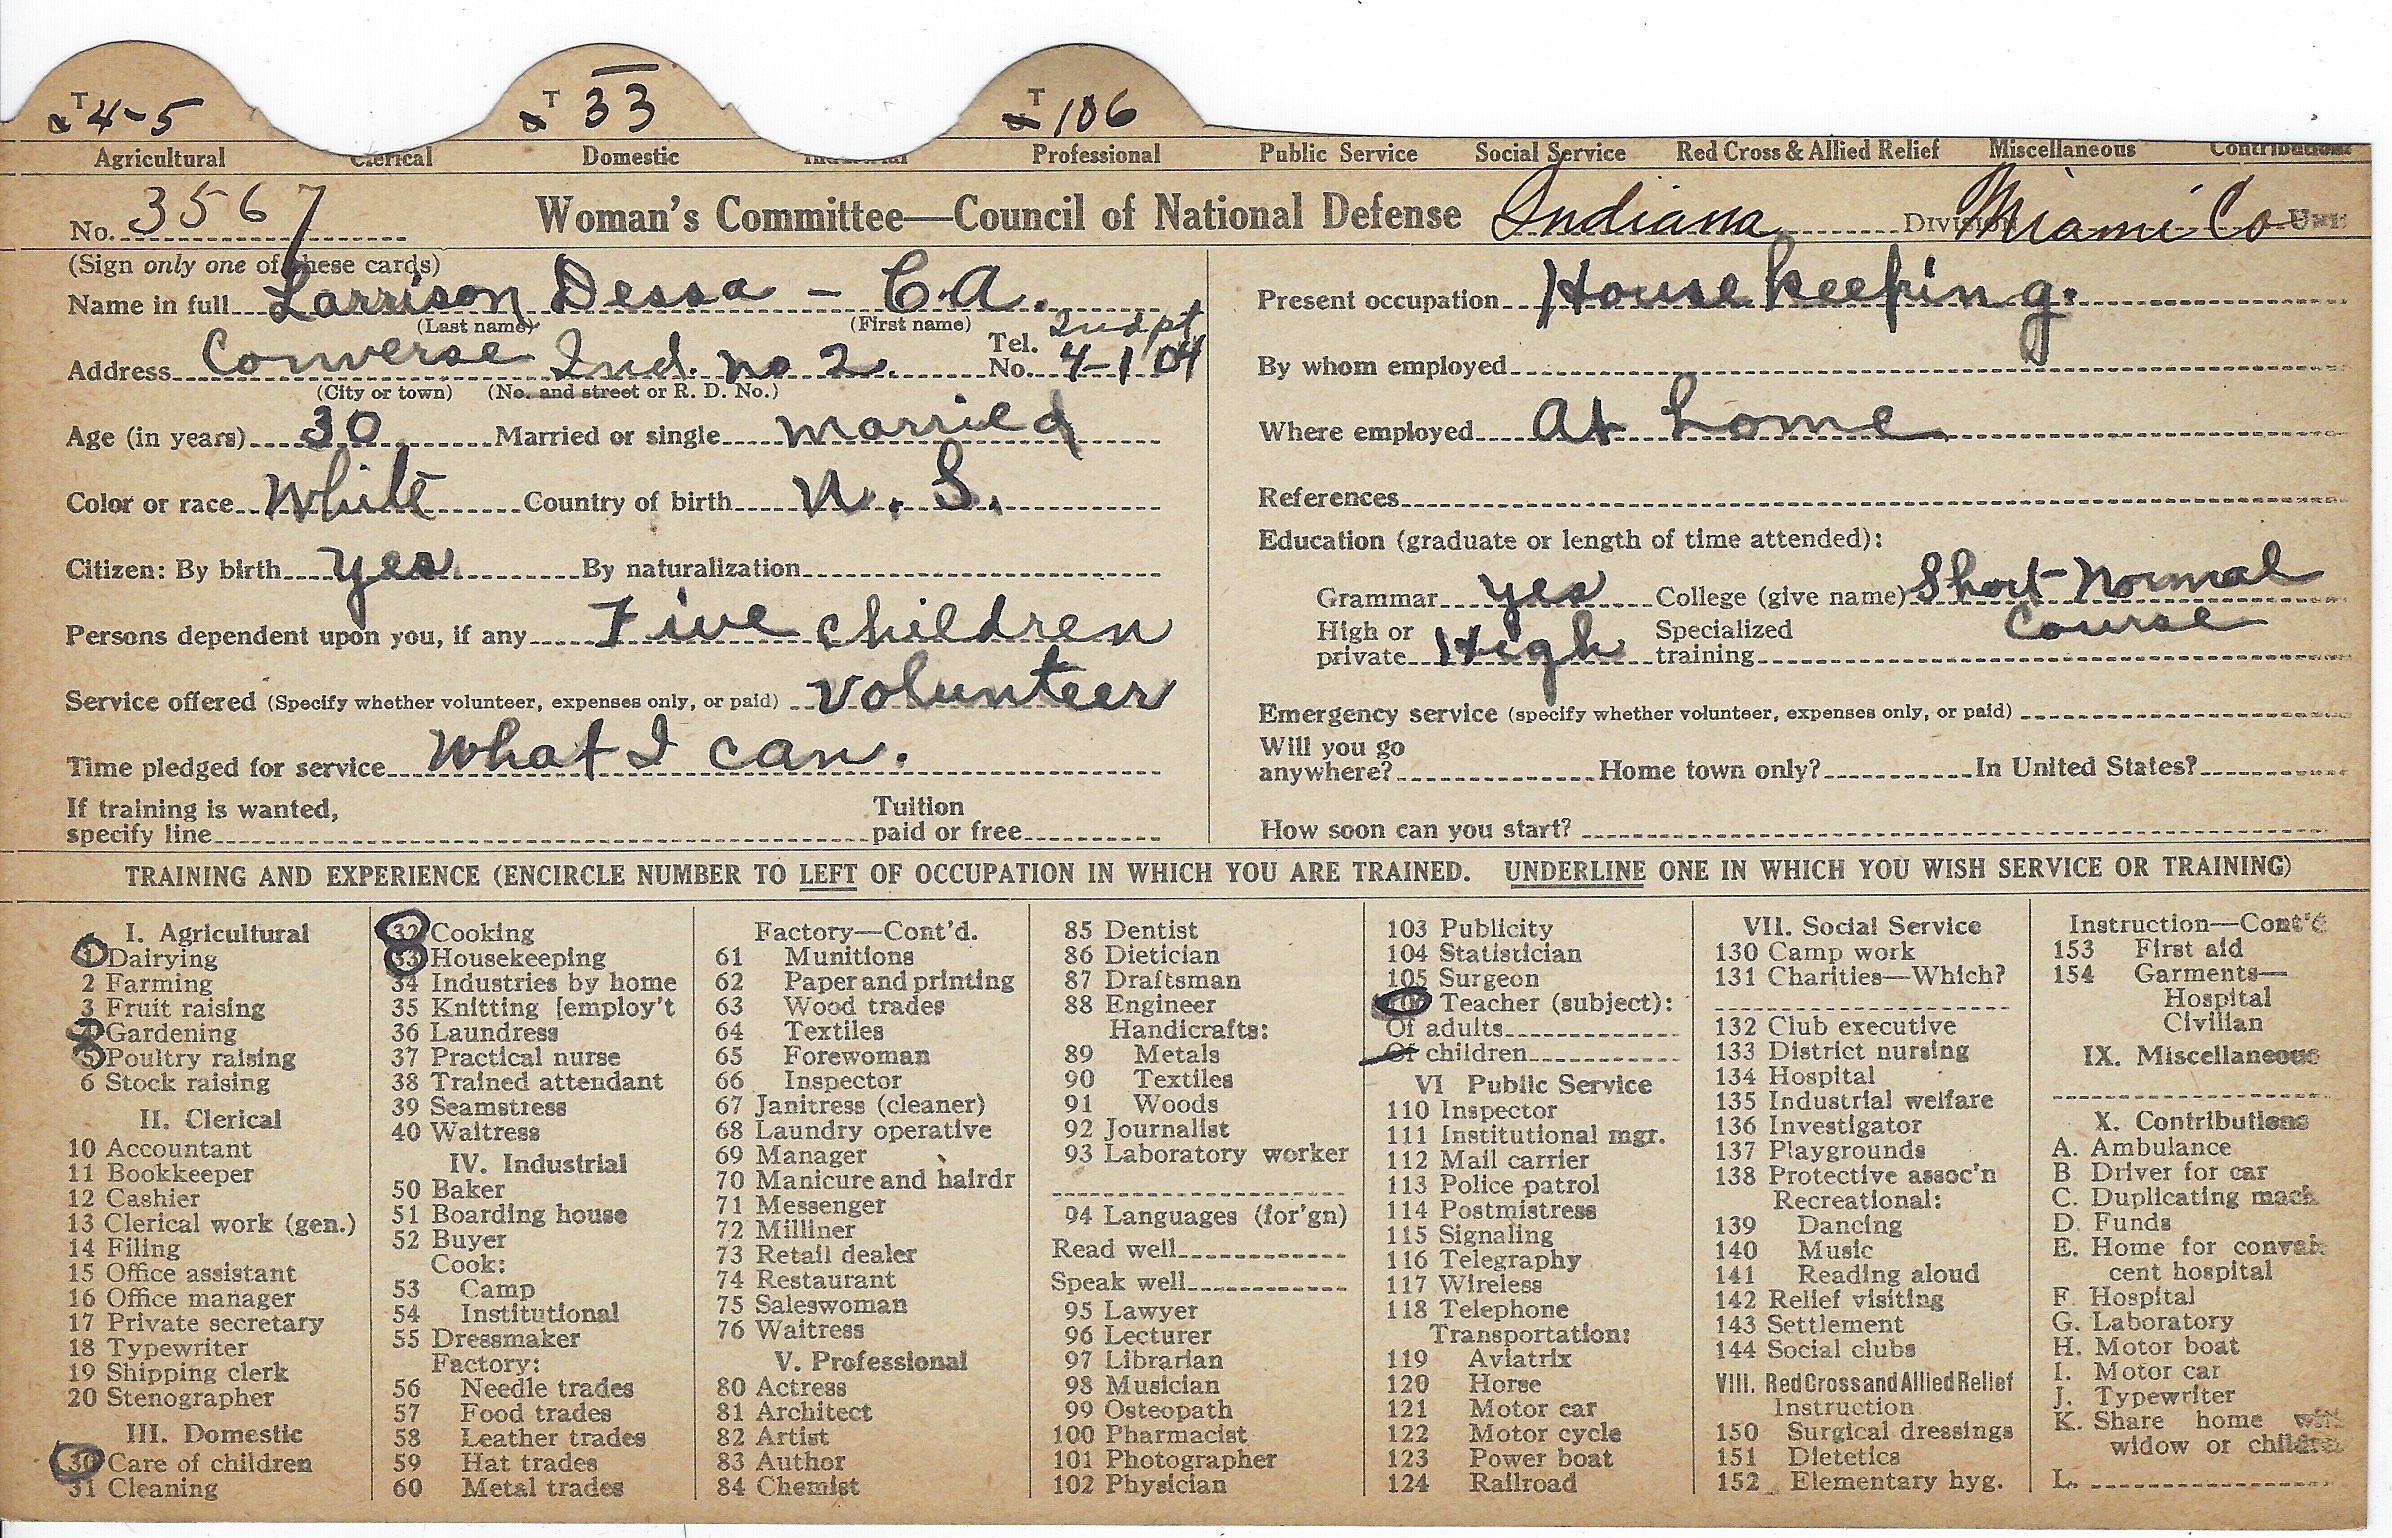 T 4-5 T 33 T 106
Agricultural Clerical Domestic Industrial Professional Public Service Social Service Red Cross & Allied Relief Miscellaneous Contributions
No. 3567 Woman's Committee—Council of National Defense Indiana Division Miami Co Unit
(Sign only one of these cards)
Name in full Larrison Dessa – C.A.
(Last name) (First name)
Address Converse Ind. no 2. Tel. No. Indpt 4-104
(City or town) (No. and street or R. D. No.)
Age (in years) 30 Married or single married
Color or race White Country of birth U. S.
Citizen: By birth yes By naturalization
Persons dependent upon you, if any Five children
Service offered (Specify whether volunteer, expenses only, or paid) volunteer
Time pledged for service What I can.
If training is wanted, specify line Tuition paid or free
Present occupation Housekeeping.
By whom employed
Where employed At home
References
Education (graduate or length of time attended):
Grammar yes College (give name) Short Normal
High or private High Specialized training Course
Emergency service (specify whether volunteer, expenses only, or paid)
Will you go anywhere? Home town only? In United States?
How soon can you start?
TRAINING AND EXPERIENCE (ENCIRCLE NUMBER TO LEFT OF OCCUPATION IN WHICH YOU ARE TRAINED. UNDERLINE ONE IN WHICH YOU WISH SERVICE OR TRAINING)
I. Agricultural
1 Dairying
2 Farming
3 Fruit raising
4 Gardening
5 Poultry raising
6 Stock raising
II. Clerical
10 Accountant
11 Bookkeeper
12 Cashier
13 Clerical work (gen.)
14 Filing
15 Office assistant
16 Office manager
17 Private secretary
18 Typewriter
19 Shipping clerk
20 Stenographer
III. Domestic
30 Care of children
31 Cleaning
32 Cooking
33 Housekeeping
34 Industries by home
35 Knitting [employ't
36 Laundress
37 Practical nurse
38 Trained attendant
39 Seamstress
40 Waitress
IV. Industrial
50 Baker
51 Boarding house
52 Buyer
Cook:
53 Camp
54 Institutional
55 Dressmaker
Factory:
56 Needle trades
57 Food trades
58 Leather trades
59 Hat trades
60 Metal trades
Factory—Cont'd.
61 Munitions
62 Paper and printing
63 Wood trades
64 Textiles
65 Forewoman
66 Inspector
67 Janitress (cleaner)
68 Laundry operative
69 Manager
70 Manicure and hairdr
71 Messenger
72 Milliner
73 Retail dealer
74 Restaurant
75 Saleswoman
76 Waitress
V. Professional
80 Actress
81 Architect
82 Artist
83 Author
84 Chemist
85 Dentist
86 Dietician
87 Draftsman
88 Engineer
Handicrafts:
89 Metals
90 Textiles
91 Woods
92 Journalist
93 Laboratory worker
94 Languages (for'gn)
Read well
Speak well
95 Lawyer
96 Lecturer
97 Librarian
98 Musician
99 Osteopath
100 Pharmacist
101 Photographer
102 Physician
103 Publicity
104 Statistician
105 Surgeon
106 Teacher (subject):
Of adults
Of children
VI Public Service
110 Inspector
111 Institutional mgr.
112 Mail carrier
113 Police patrol
114 Postmistress
115 Signaling
116 Telegraphy
117 Wireless
118 Telephone
Transportation:
119 Aviatrix
120 Horse
121 Motor car
122 Motor cycle
123 Power boat
124 Railroad
VII. Social Service
130 Camp work
131 Charities—Which?
132 Club executive
133 District nursing
134 Hospital
135 Industrial welfare
136 Investigator
137 Playgrounds
138 Protective assoc'n
Recreational:
139 Dancing
140 Music
141 Reading aloud
142 Relief visiting
143 Settlement
144 Social clubs
VIII. Red Cross and Allied Relief
Instruction
150 Surgical dressings
151 Dietetics
152 Elementary hyg.
Instruction—Cont'd
153 First aid
154 Garments—
Hospital
Civilian
IX. Miscellaneous
X. Contributions
A. Ambulance
B Driver for car
C. Duplicating mach.
D. Funds
E. Home for convales
cent hospital
F. Hospital
G. Laboratory
H. Motor boat
I. Motor car
J. Typewriter
K. Share home with
widow or children
L.